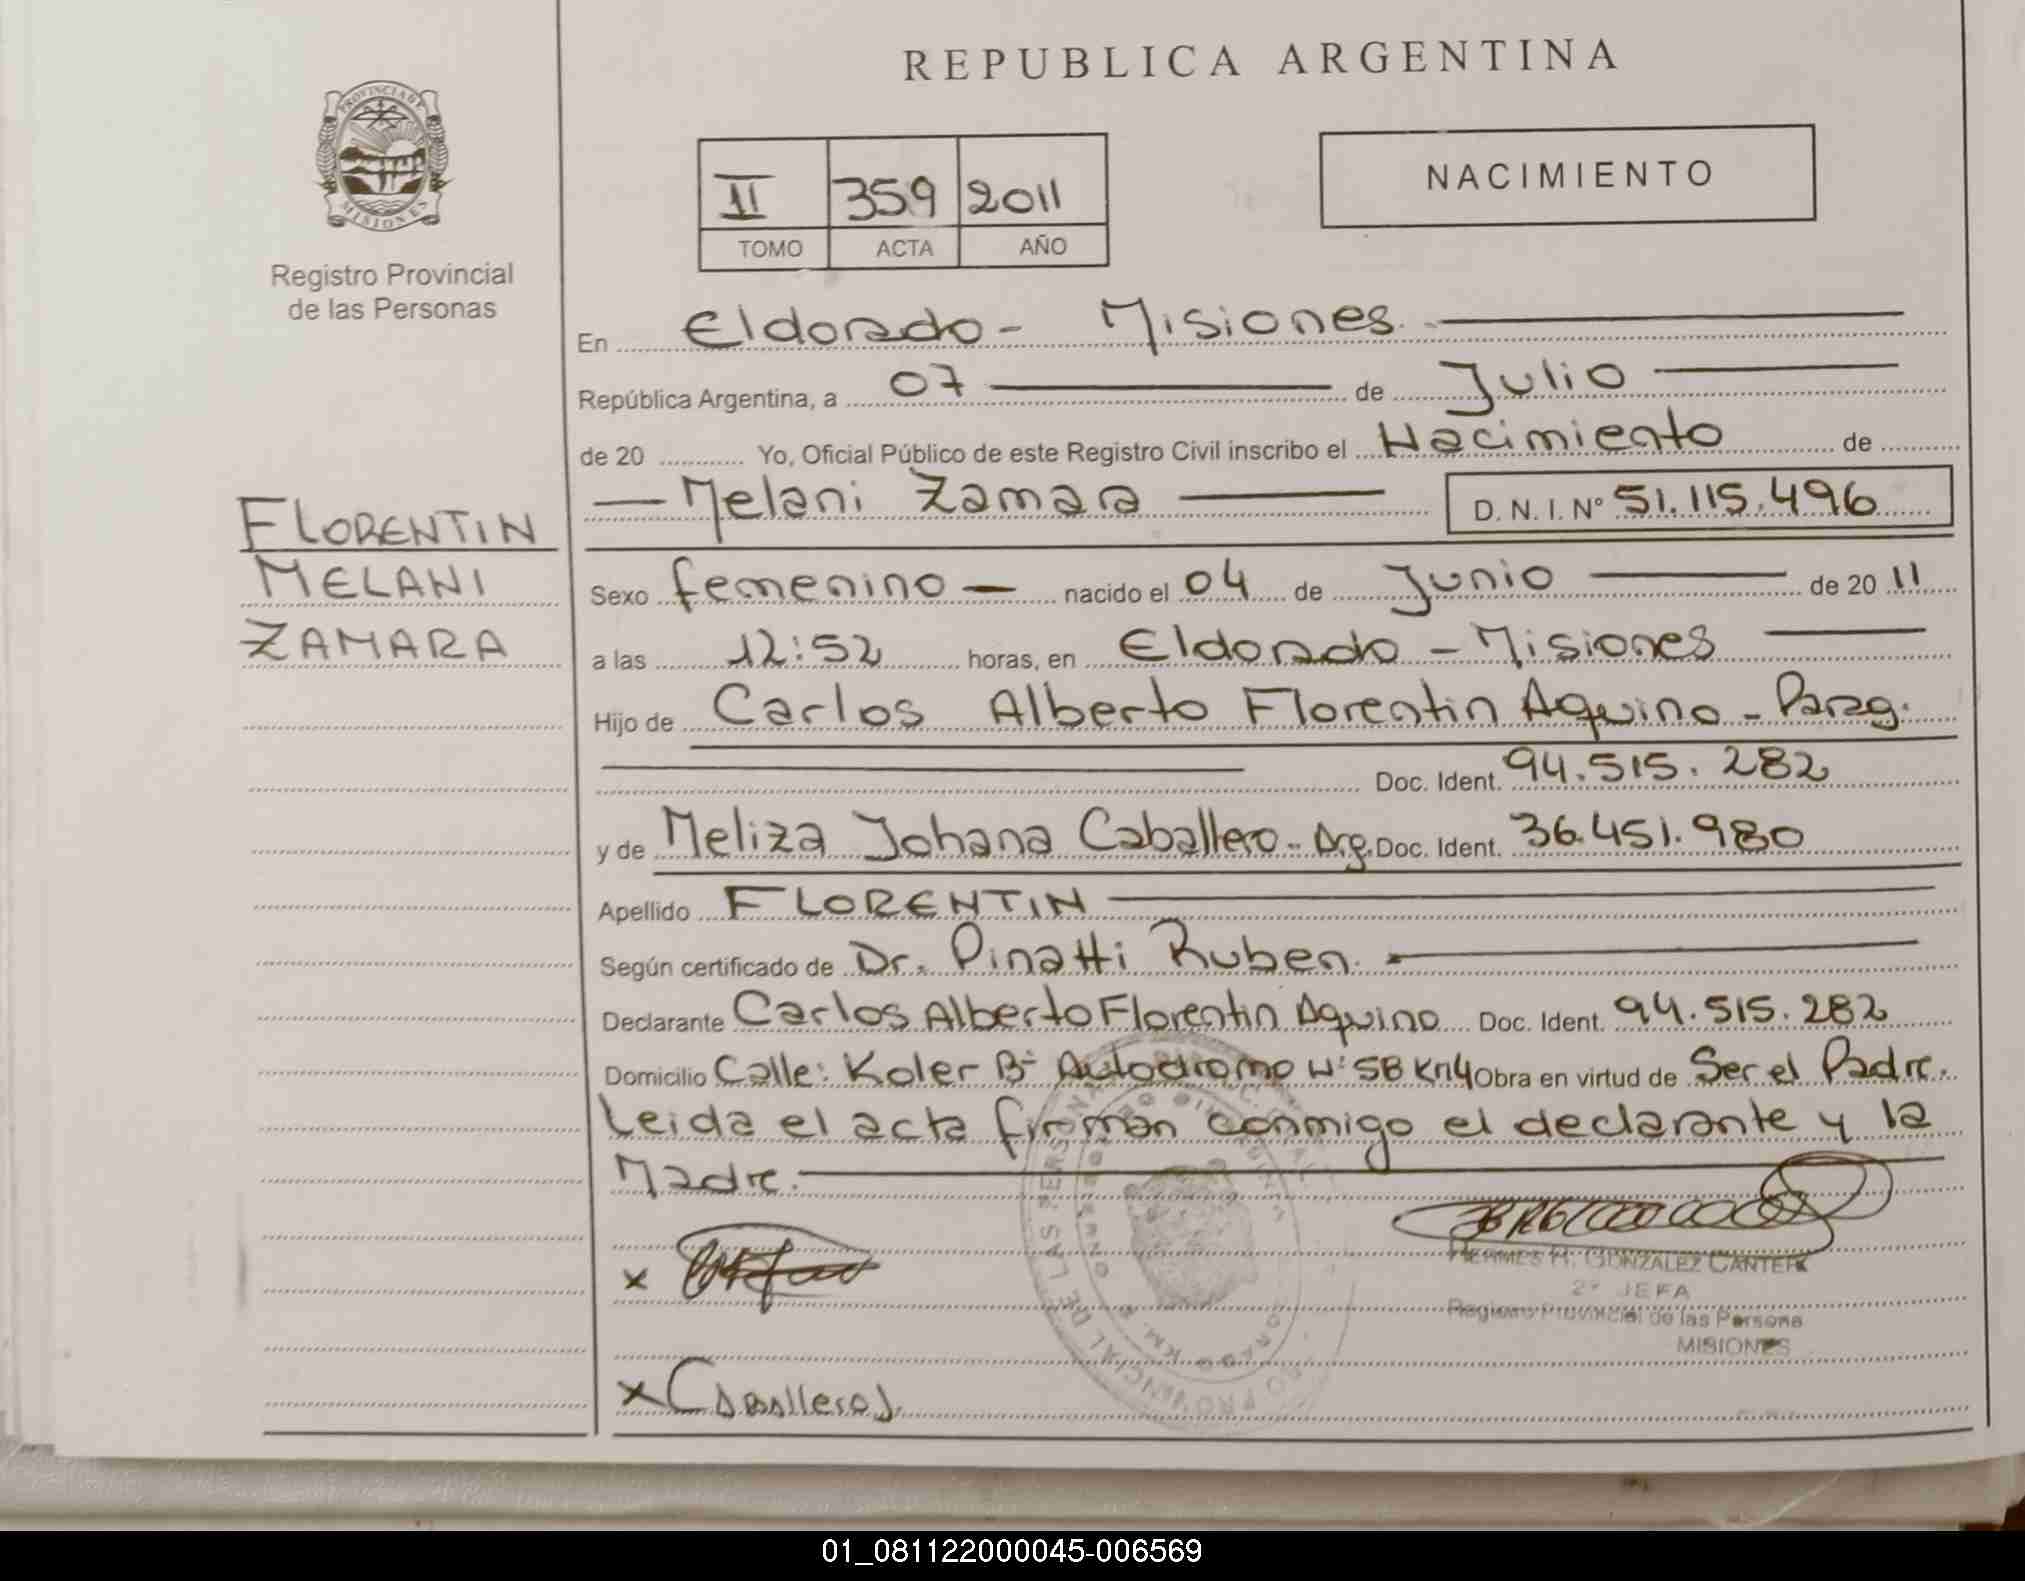 REPUBLICA ARGENTINA
PROVINCIA DE
MISIONES
Registro Provincial
de las Personas
II 359 2011
TOMO ACTA AÑO
NACIMIENTO
FLORENTIN
MELANI
ZAMARA
En Eldorado - Misiones.
República Argentina, a 07 de Julio
de 20 Yo, Oficial Público de este Registro Civil inscribo el Nacimiento de
Melani Zamara D. N. I. Nº 51.115.496
Sexo femenino nacido el 04 de Junio de 20 11
a las 12:52 horas, en Eldorado - Misiones
Hijo de Carlos Alberto Florentin Aquino - Parag.
Doc. Ident. 94.515.282
y de Meliza Johana Caballero - Arg. Doc. Ident. 36.451.980
Apellido FLORENTIN
Según certificado de Dr. Pinatti Ruben.
Declarante Carlos Alberto Florentin Aquino Doc. Ident. 94.515.282
Domicilio Calle: Koler Bº Autodromo Nº 58 Km4 Obra en virtud de Ser el Padre.
Leida el acta firman conmigo el declarante y la
Madre.
HERMES H. GONZALEZ CANTER
2º JEFA
Registro Provincial de las Persona
MISIONES
x
x Caballero J.
PROVINCIAL DE LAS PERSONA
01_081122000045-006569